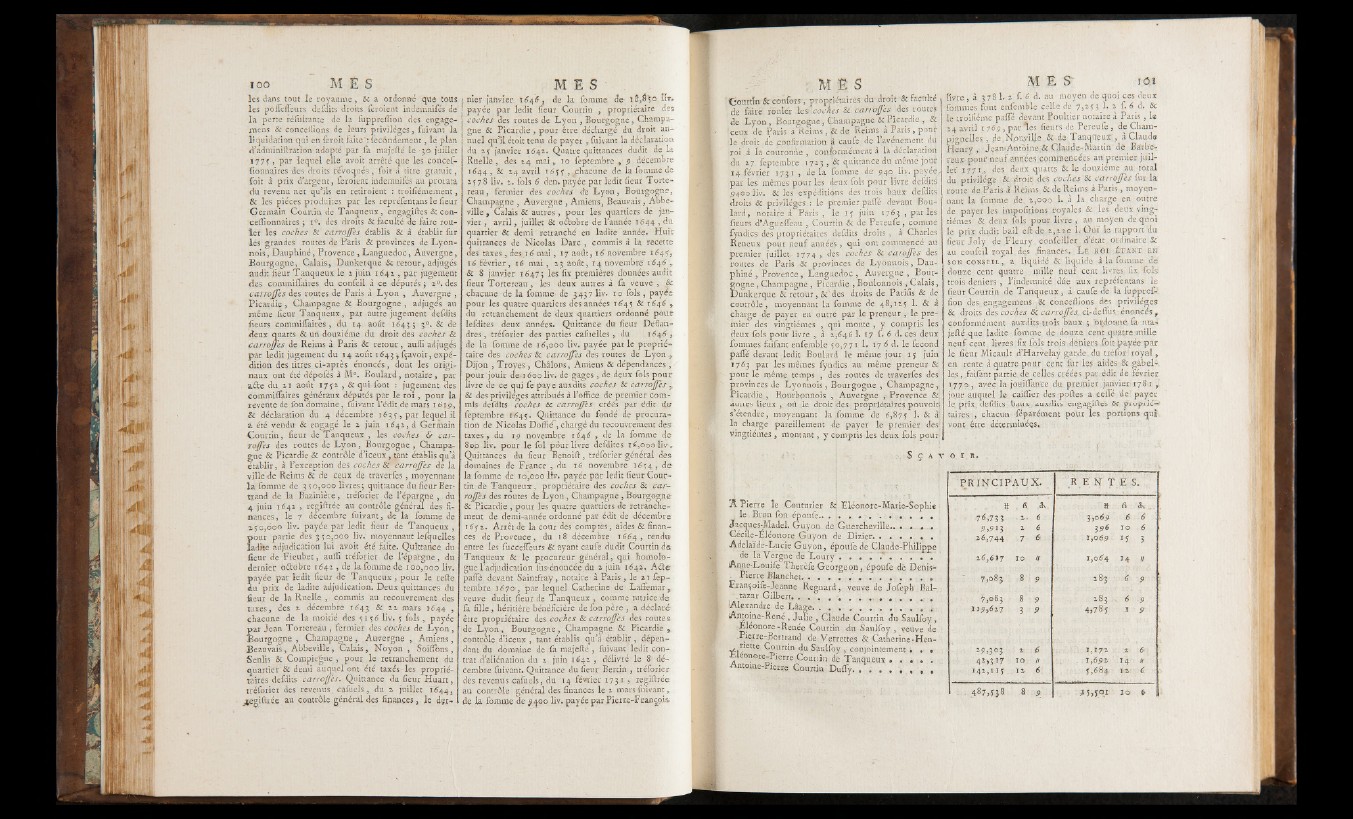 100 M E S
les dans tout le royaume, & a ordonné que tous
les possesseurs desdits droits seroient indemnisés de
la perte résultante de la suppression des engage-
mens & concessions de leurs priviléges, suivant la
liquidation qui en seroit faite : secondement, le plan
d'administration adopté par sa majesté le 30 juillet
1775, par lequel elle avoit arrêté que les conces-
sionnaires des droits révoqués, soit à titre gratuit,
soit à prix d'argent, seroient indemnisés au prorata
du revenu net qu'ils en retiroient : troisiémement,
& les piéces produites par les représentans le sieur
Germain Courtin de Tanqueux, engagistes & con-
cessionnaires ; 1º. des droits & faculté de faire rou-
ler les coches & carrosses établis & à établir sur
les grandes routes de Paris & provinces de Lyon-
nois, Dauphiné, Provence, Languedoc, Auvergne,
Bourgogne, Calais, Dunkerque & retour, adjugés
audit sieur Tanqueux le 2 juin 1642, par jugement
des commissaires du conseil à ce députés ; 2º. des
carrosses des routes de Paris à Lyon, Auvergne,
Picardie, Champagne & Bourgogne, adjugés au
même sieur Tanqueux, par autre jugement desdits
sieurs commissaires, du 14 août 1643 ; 3º. & de
deux quarts & un douzième du droit des coches &
carrosses de Reims à Paris & retour, aussi adjugés
par ledit jugement du 14 août 1643, sçavoir, expé-
dition des titres ci-après énoncés, dont les origi-
naux ont été déposés à Me. Boulard, notaire, par
acte du 21 août 1752, & qui sont : jugement des
commissaires généraux députés par le roi, pour la
revente de son domaine, suivant l'édit de mars 1619,
& déclaration du 4 décembre 1625, par lequel il
a été vendu & engagé le 2 juin 1642, à Germain
Courtin, sieur de Tanqueux, les coches & car-
rosses des routes de Lyon, Bourgogne, Champa-
gne & Picardie & contrôle d'iceux, tant établis qu'à
établir, à l'exception des coches & carrosses de la
ville de Reims & de ceux de traverses, moyennant
la somme de 350,000 livres ; quittance du sieur Ber-
trand de la Baziniere, trésorier de l'épargne, du
4 juin 1642, registrée au contrôle général des fi-
nances, le 7 décembre suivant, de la somme de
250,000 liv. payée par ledit sieur de Tanqueux,
pour partie des 350,000 liv. moyennant lesquelles
ladite adjudication lui avoit été faite. Quittance du
sieur de Fieubet, aussi trésorier de l'épargne, du
dernier octobre 1642, de la somme de 100,000 liv.
payée par ledit sieur de Tanqueux, pour le reste
du prix de ladite adjudication. Deux quittances du
sieur de la Ruelle, commis au recouvrement des
taxes, des 2 décembre 1643 & 22 mars 1644,
chacune de la moitié des 5156 liv. 5 sols, payée
par Jean Tortereau, fermier des coches de Lyon,
Bourgogne, Champagne, Auvergne, Amiens,
Beauvais, Abbeville, Calais, Noyon, Soissons,
Senlis & Compiegne, pour le retranchement du
quartier & demi auquel ont été taxés les proprié-
taires desdits carrosses. Quittance du sieur Huart,
trésorier des revenus casuels, du 2 juillet 1644,
registrée au contrôle général des finances, le der-
M E S
nier janvier 1646, de la somme de 18,850 liv.
payée par ledit sieur Courtin, propriétaire des
coches des routes de Lyon, Bourgogne, Champa-
gne & Picardie, pour être déchargé du droit an-
nuel qu'il étoit tenu de payer, suivant la déclaration
du 25 janvier 1642. Quatre quittances dudit de la
Ruelle, des 24 mai, 10 septembre, 9 décembre
1644, & 24 avril 1655, chacune de la somme de
2578 liv. 2 sols 6 den. payée par ledit sieur Torte-
reau, fermier des coches de Lyon, Bourgogne,
Champagne, Auvergne, Amiens, Beauvais, Abbe-
ville, Calais & autres, pour les quartiers de jan-
vier, avril, juillet & octobre de l'année 1644, du
quartier & demi retranché en ladite année. Huit
quittances de Nicolas Darc, commis à la recette
des taxes, des 16 mai, 17 août, 16 novembre 1645,
16 février, 16 mai, 23 août, 14 novembre 1646,
& 8 janvier 1647 ; les six premières données audit
sieur Tortereau, les deux autres à sa veuve, &
chacune de la somme de 3437 liv. 10 sols, payée
pour les quatre quartiers des années 1645 & 1646,
du retranchement de deux quartiers ordonné pour
lesdites deux années. Quittance du sieur Desan-
dres, trésorier des parties casuelles, du 1646,
de la somme de 16,000 liv. payée par le proprié-
taire des coches & carrosses des routes de Lyon,
Dijon, Troyes, Châlons, Amiens & dépendances,
pour jouir de 1600 liv. de gages, de deux sols pour
livre de ce qui se paye auxdits coches & carrosses,
& des priviléges attribués à l'office de premier com-
mis desdits coches & carrosses créés par édit de
septembre 1645. Quittance du fondé de procura-
tion de Nicolas Doffié, chargé du recouvrement des
taxes, du 19 novembre 1646, de la somme de
800 liv. pour le sol pour livre desdites 16,000 liv.
Quittances du sieur Benoist, trésorier général des
domaines de France, du 16 novembre 1654, de
la somme de 10,000 liv. payée par ledit sieur Cour-
tin de Tanqueux, propriétaire des coches & car-
rosses des routes de Lyon, Champagne, Bourgogne
& Picardie, pour les quatre quartiers de retranche-
ment de demi-année ordonné par édit de décembre
1652. Arrêt de la cour des comptes, aides & finan-
ces de Provence, du 18 décembre 1664, rendu
entre les successeurs & ayant cause dudit Courtin de
Tanqueux & le procureur général, qui homolo-
gue l'adjudication sus-énoncée du 2 juin 1642. Acte
passé devant Saintfray, notaire à Paris, le 23 sep-
tembre 1670, par lequel Catherine de Laffemar,
veuve dudit sieur de Tanqueux, comme tutrice de
sa fille, héritière bénéficière de son père, a déclaré
être propriétaire des coches & carrosses des routes
de Lyon, Bourgogne, Champagne & Picardie,
contrôle d'iceux, tant établis qu'à établir, dépen-
dant du domaine de sa majesté, suivant ledit con-
trat d'aliénation du 2 juin 1642, délivré le 8 dé-
cembre suivant. Quittance du sieur Bertin, trésorier
des revenus casuels, du 14 février 1731, registrée
au contrôle général des finances le 2 mars suivant,
de la somme de 9400 liv. payée par Pierre-François
M E S
Courtin & consors, propriétaires du droit & faculté
de faire rouler les coches & carrosses des routes
de Lyon, Bourgogne, Champagne & Picardie, &
ceux de Paris à Reims, & de Reims à Paris, pour
le droit de confirmation à cause de l'avénement du
roi à la couronne, conformément à la déclaration
du 27 septembre 1723, & quittance du même jour
14 février 1731, de la somme de 940 liv. payée
par les mêmes pour les deux sols pour livre desdits
9400 liv. & les expéditions des trois baux desdits
droits & priviléges : le premier passé devant Bou-
lard, notaire à Paris, le 15 juin 1763, par les
sieurs d'Aguesseau, Courtin & de Pereuse, comme
syndics des propriétaires desdits droits, à Charles
Reneux pour neuf années, qui ont commencé au
premier juillet 1774, des coches & carosses des
routes de Paris & provinces de Lyonnois, Dau-
phiné, Provence, Languedoc, Auvergne, Bour-
gogne, Champagne, Picardie, Boulonnois, Calais,
Dunkerque & retour, & des droits de Parisis & de
contrôle, moyennant la somme de 48,125 l. & à
charge de payer en outre par le preneur, le pre-
mier des vingtiémes, qui monte, y compris les
deux sols pour livre, à 2,646 l. 17 s. 6 d. ces deux
sommes faisant ensemble 50,771 l. 17 6 d. le second
passé devant ledit Boulard le même jour 15 juin
1763 par les mêmes syndics au même preneur &
pour le même temps, des routes de traverses des
provinces de Lyonnois, Bourgogne, Champagne,
Picardie, Bourbonnois, Auvergne, Provence &
autres lieux, où le droit des propriétaires pouvoit
s'étendre, moyennant la somme de 6,875 l. & à
la charge pareillement de payer le premier des
vingtiémes, montant, y compris les deux sols pour
M E S 101
livre, à 378 l. 2 s. 6 d. au moyen de quoi ces deux
sommes font ensemble celle de 7,253 l. 2 s. 6 d. &
le troisiéme passé devant Poultier notaire à Paris, le
24 avril 1769, par les sieurs de Pereuse, de Cham-
pignelles, de Nonville & de Tanqueux, à Claude
Henry, Jean-Antoine & Claude-Martin de Barbe-
reux pour neuf années commencées au premier juil-
let 1771, des deux quarts & le douziéme au total
du privilége & droit des coches & carrosses sur la
route de Paris à Reims, & de Reims à Paris, moyen-
nant la somme de 2,000 l. à la charge en outre
de payer les impositions royales & les deux ving-
tiémes & deux sols pour livre, au moyen de quoi
le prix dudit bail est de 2,220 l. Oui le rapport du
sieur Joly de Fleury, conseiller d'état ordinaire &
au conseil royal des finances. LE ROI ÉTANT EN
SON CONSEIL, a liquidé & liquide à la somme de
douze cent quatre mille neuf cent livres six sols
trois deniers, l'indemnité dûe aux représentans le
sieur Courtin de Tanqueux, à cause de la suppres-
sion des engagemens & concessions des priviléges
& droits des coches & carrosses ci-dessus énoncés,
conformément auxdits trois baux ; ordonne sa ma-
jesté que ladite somme de douze cent quatre mille
neuf cent livres six sols trois deniers soit payée par
le sieur Micault d'Harvelay garde du trésor royal,
en rente à quatre pour cent sur les aides & gabel-
les, faisant partie de celles créées par édit de février
1770, avec la jouissance du premier janvier 1782,
jour auquel le caissier des postes a cessé de payer
le prix desdits baux auxdits engagistes & proprié-
taires, chacun séparément pour les portions qui
vont être déterminées.
S Ç A V O I R.
PRINCIPAUX. RENTES.
₶ ß ₰. ₶ ß ₰.
A Pierre le Couturier & Eléonore-Marie-Sophie
le Brun son épouse. 76,733 2 6 3,069 6 6
Jacques-Madel. Guyon de Guercheville. 9,913 2 6 396 10 6
Cécile-Eléonore Guyon de Dizier. 26,744 7 6 1,069 15 3
Adelaïde-Lucie Guyon, épouse de Claude-Philippe
de la Vergne de Loury. 26,617 10 " 1,064 14 "
Anne-Louise Therése Georgeon, épouse de Denis-
Pierre Blanchet. 7,083 8 9 283 6 9
Françoise-Jeanne Regnard, veuve de Joseph Bal-
tazar Gilbert. 7,083 8 9 283 6 9
Alexandre de Laage. 119,627 3 9 4,785 1 9
Antoine-René, Julie, Claude Courtin du Saulsoy,
Eléonore-Renée Courtin du Saulsoy, veuve de
Pierre-Bertrand de Vetrettes & Catherine-Hen-
riette Courtin du Saulsoy, conjointement. 29,303 2 6 1,172 2 6
Eléonore-Pierre Courtin de Tanqueux. 42,317 10 " 1,692 14 "
Antoine-Pierre Courtin Dussy. 142,115 12 6 5,684 12 6
487,538 8 9 19,501 10 6